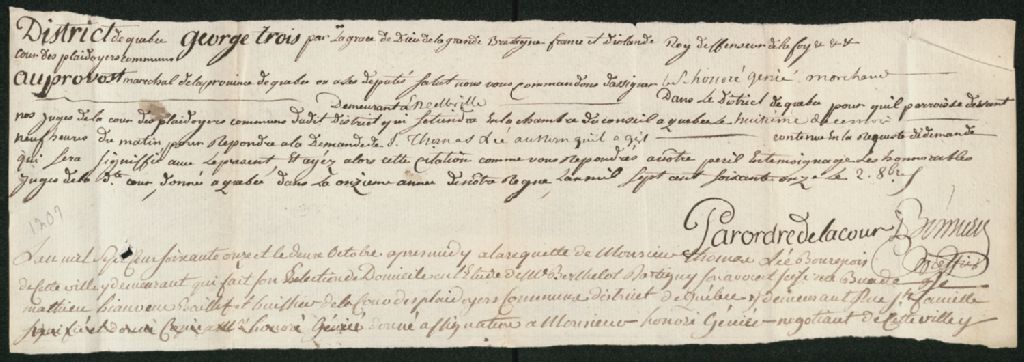 District de quebec george trois par La grace de Dieu de la grande Bretagne france et dirlande Roy deffenseur de la foy & & &
Cour des plaidoyers communs
au provost marechal de la province de quebec ou a ses deputés Salut nous vous commandons dassigner le Sr honoré génie marchand
Demeurant a Dans Le District de quebec pour quil paroisse devant
nos juges de la cour des plaidoyers communs dudit District qui se tiendra En la chambre du conseil a quebec le huitieme decembre
neuf heures du matin pour Repondre a la Demande de Sr Thomas Lée au nom quil agit contenue En la Requete de demande
qui Sera Signiffiée avec Le present Et ayez alors cette citation comme vous Repondrés a votre peril En temoignage Les honorables
Juges de la Dte cour, donné a quebec dans La onzieme année de notre Regne, Lan mil Sept cent Soixante onze Le 2. 8bre
1209
Par ordre de la cour
L'an mil Sept Cent soixante onze et le deux Octobre apres midy a la requette de Monsieur Thomas Lée Bourgeois
de cette ville y demeurant qui fait son Election de Domicile en l'Etude de Me Berthelot Dartigny
mathieu huissier de la Cour des plaidoyers Commune district de Québec y demeurant Rue Ste famille
honoré Génie donné assignation a Monsieur honoré Génie negotiant de Cette ville y